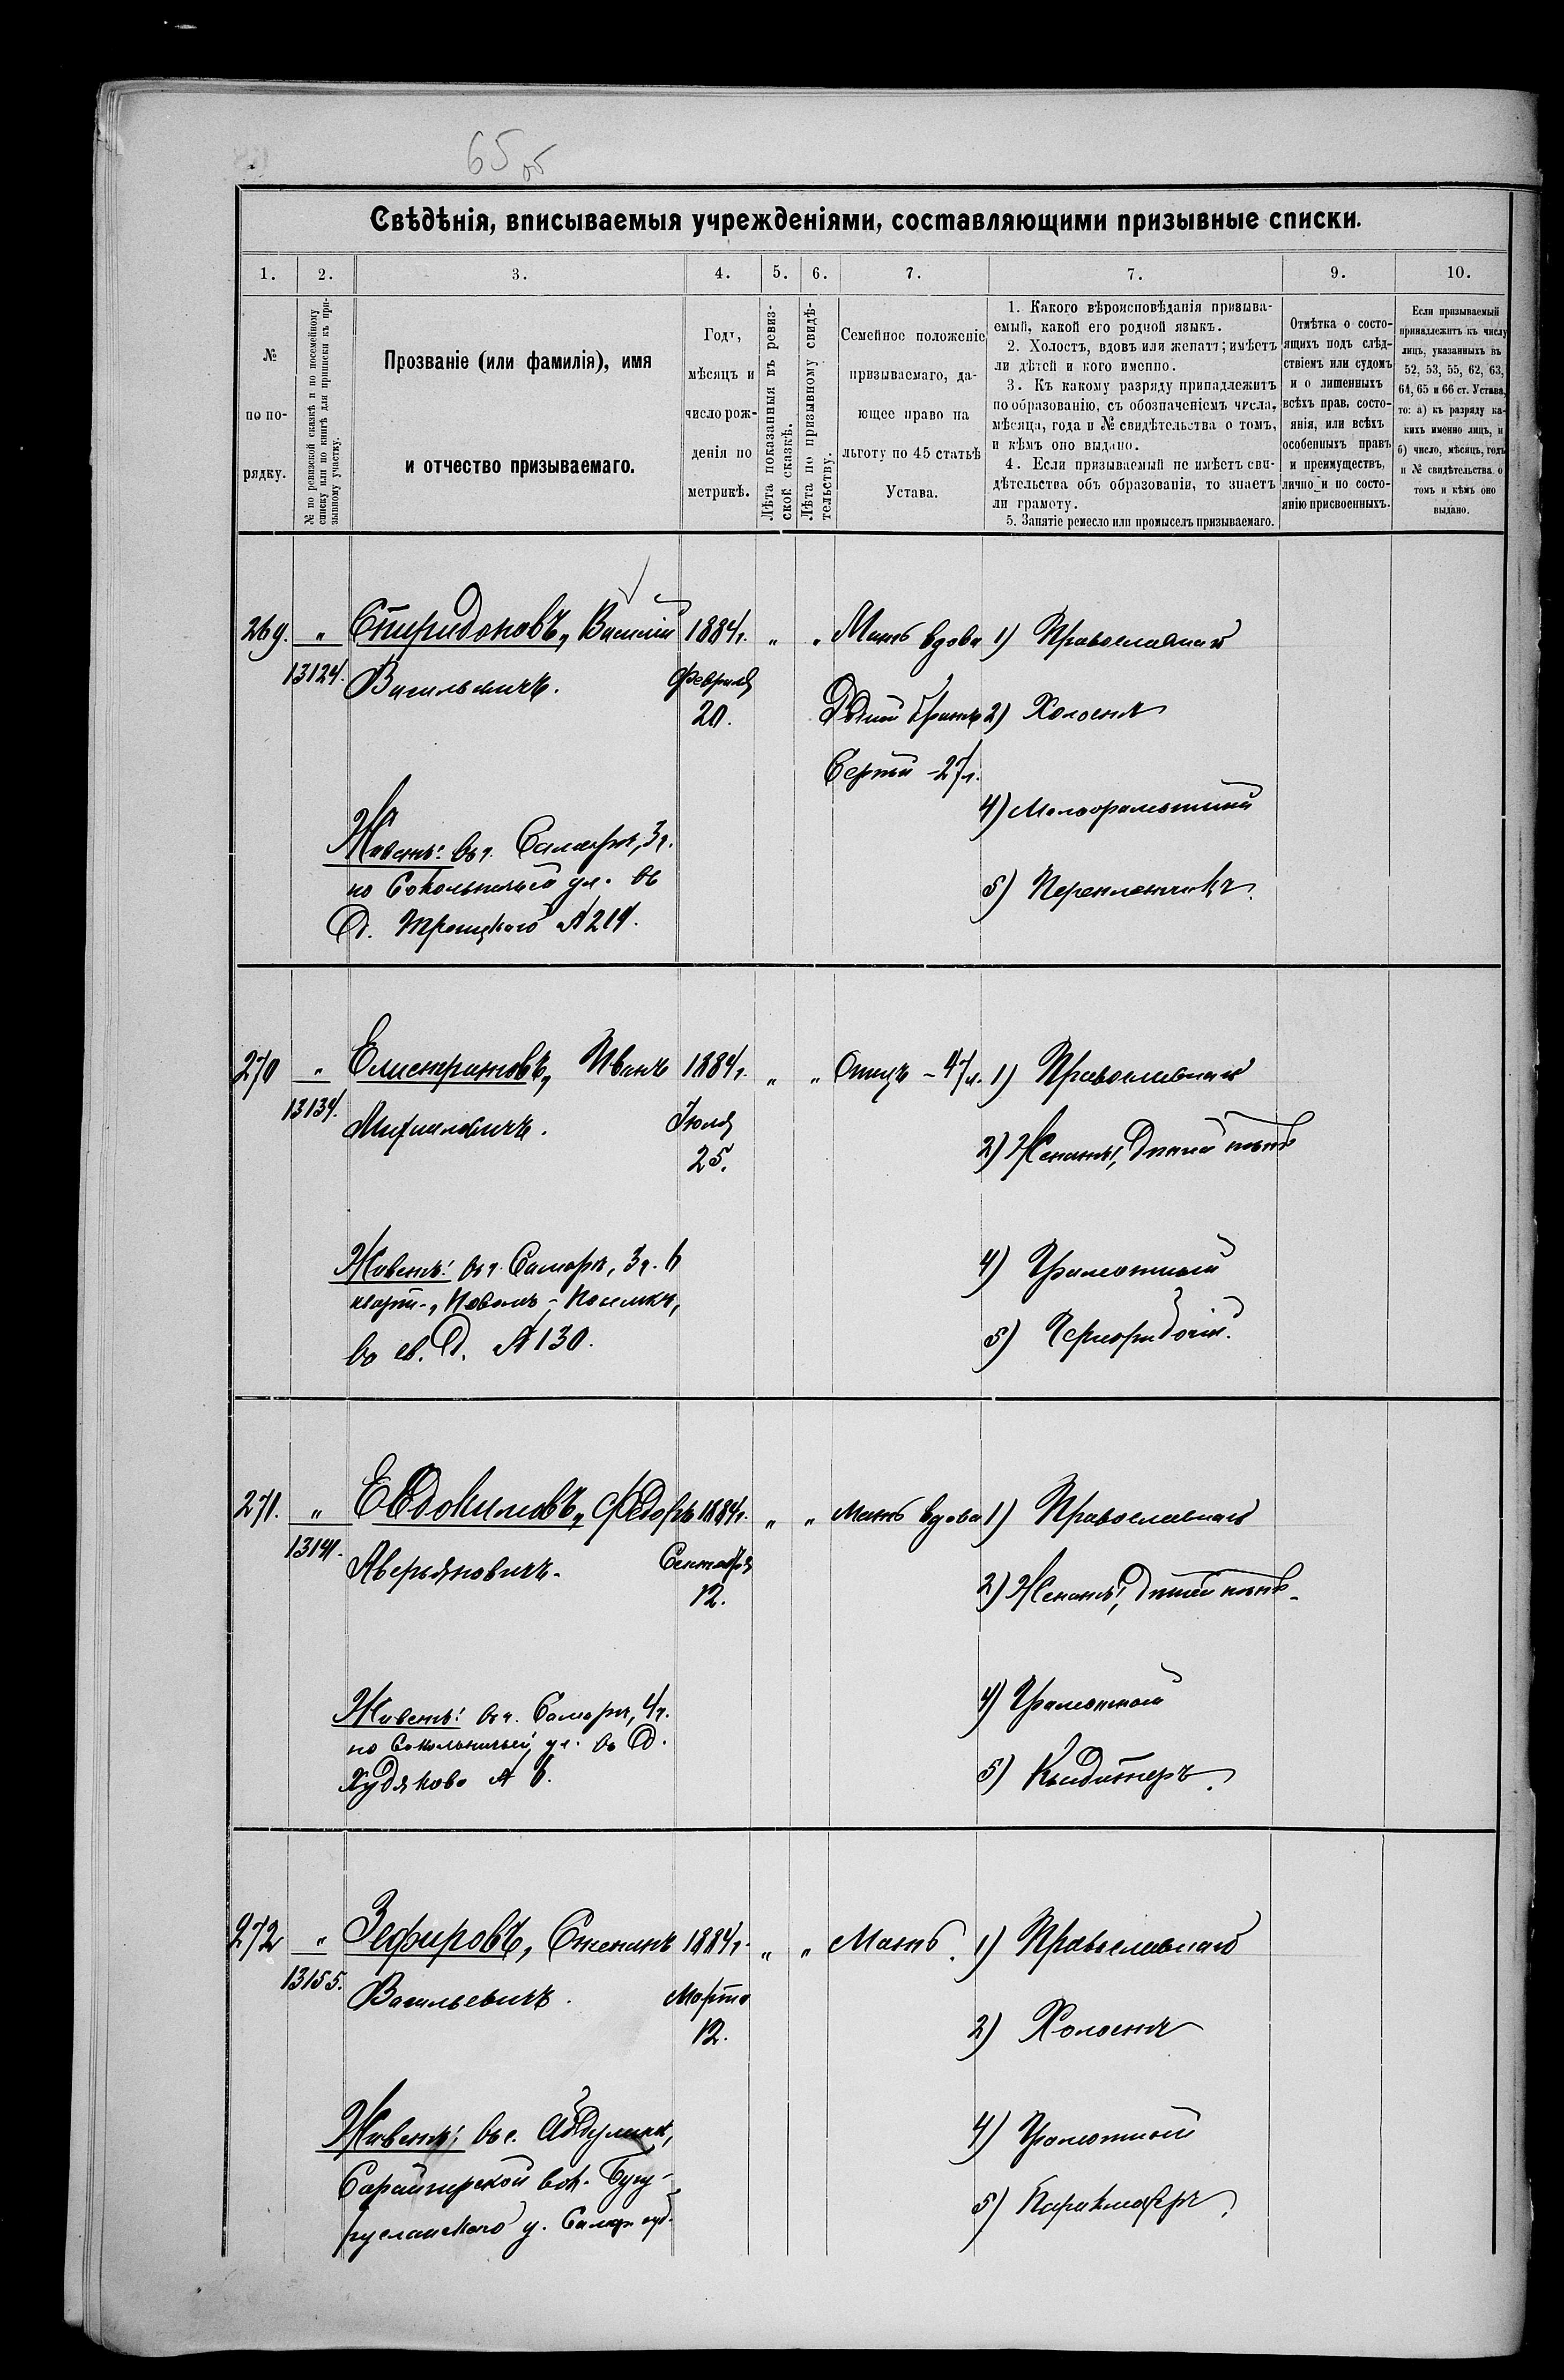 65 об
Свѣдѣнія, вписываемыя учрежденіями, составляющими призывные списки.
1. 2. 3. 4. 5. 6. 7. 7. 9. 10.
№ по порядку.
№ по ревизской сказкѣ и по посемейному
списку или по книгѣ для приписки къ при-
зывному участку.
Прозваніе (или фамилія), имя
и отчество призываемаго.
Годъ,
мѣсяцъ и
число рож-
денія по
метрикѣ.
Лѣта показанныя въ ревиз-
ской сказкѣ.
Лѣта по призывному свидѣ-
тельству.
Семейное положеніе
призываемаго, да-
ющее право на
льготу по 45 статьѣ
Устава.
1. Какого вѣроисповѣданія призыва-
емый, какой его родной языкъ.
2. Холостъ, вдовъ или женатъ; имѣетъ
ли дѣтей и кого именно.
3. Къ какому разряду принадлежитъ
по образованію, съ обозначеніемъ числа,
мѣсяца, года и № свидѣтельства о томъ,
и кѣмъ оно выдано.
4. Если призываемый не имѣетъ сви-
дѣтельства объ образованіи, то знаетъ
ли грамоту.
5. Занятіе ремесло или промыселъ призываемаго.
Отмѣтка о состо-
ящихъ подъ слѣд-
ствіемъ или судомъ
и о лишенныхъ
всѣхъ прав. состо-
янія, или всѣхъ
особенныхъ правъ
и преимуществъ,
лично и по состо-
янію присвоенныхъ.
Если призываемый
принадлежитъ къ числу
лицъ, указанныхъ въ
52, 53, 55, 62, 63,
64, 65 и 66 ст. Устава,
то: а) къ разряду ка-
кихъ именно лицъ, и
б) число, мѣсяцъ, годъ
и № свидѣтельства о
томъ и кѣмъ оно
выдано.
269. " Спиридоновъ, Василій 1884 г. " " Мать вдова 1) Православный
13124. Васильевичъ. Февраля
20. братъ 2) Холостъ
Сергѣй - 27 л.
4) Малограмотный
Живетъ: въ г. Самарѣ, 3 ч.
по Сокольничьей ул. въ 5) Переплетчикъ.
д. Троицкаго № 214.
270 " Елистратовъ, Иванъ 1884 г. " " Отецъ - 47 л. 1) Православный
13134. Михайловичъ. Іюля
25. 2) Женатъ, дѣтей нѣтъ
Живетъ: въ г. Самарѣ, 3 ч. 6 4) Грамотный
кварт., Новомъ - Поселкѣ,
въ св. д. № 130. 5) Чернорабочій.
271. " Евдокимовъ, Федоръ 1884 г. " " Мать вдова 1) Православный
13141. Аверьяновичъ. Сентября
12. 2) Женатъ, дѣтей нѣтъ.
Живетъ: въ г. Самарѣ, 4 ч. 4) Грамотный
по Сокольничьей ул. въ д.
Худякова № 6. 5) Кандитеръ.
272 " Зефировъ, Степанъ 1884 г. " " Мать. 1) Православный
13155. Васильевичъ. Марта
12. 2) Холостъ
Живетъ: въ с. Абдулинѣ, 4) Грамотный
Сарайгирской вол. Бугу-
русланскаго у. Самар. губ. 5) Парикмахеръ.